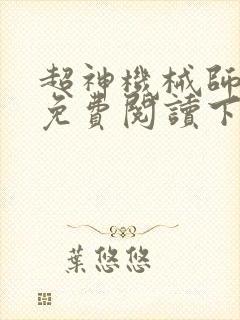 超神機械師
免費閱讀下
葉悠悠